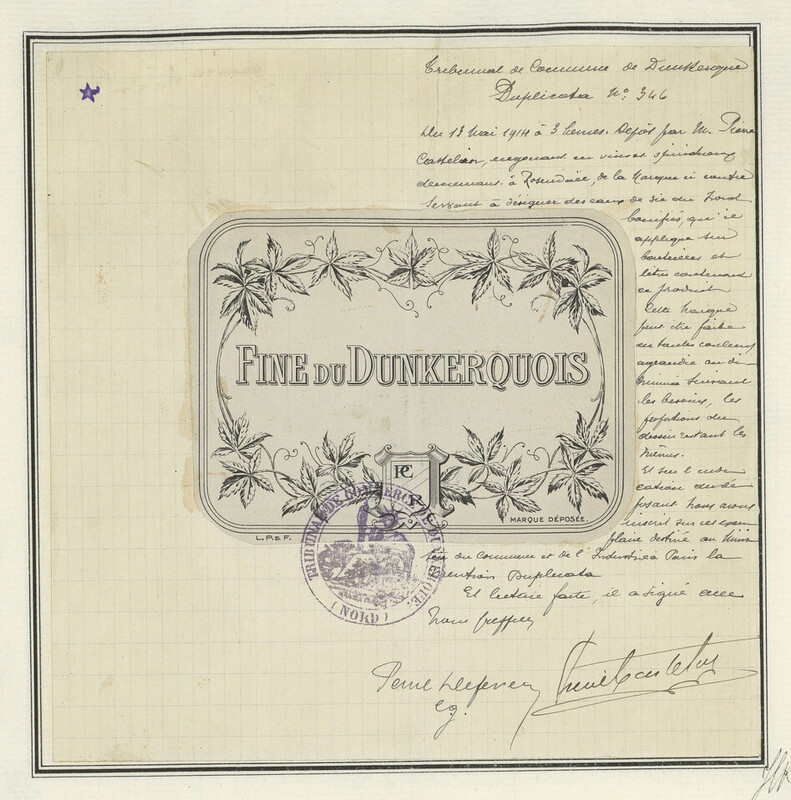 Tribunal de Commerce de Dunkerque
Duplicata N° 346
Du 13 Mai 1914 à 3 heures. Dépôt par M. Pierre
Castelain, négociant en vins et spiritueux
demeurant à Rosendael, de la Marque ci contre
servant à désigner des eaux de vie du Nord
bonifiés, qu'il
applique sur
bouteilles et
litres contenant
ce produit
Cette marque
peut être faite
en toutes couleurs
agrandie ou di
minuée suivant
les besoins, les
proportions du
dessin restant les
mêmes.
Et sur l'indi
cation du dé
posant nous avons
inscrit sur cet exem
plaire destiné au Minis
tère du Commerce et de l'Industrie à Paris la
mention Duplicata
Et lecture faite, il a signé avec
nous greffier
FINE DU DUNKERQUOIS
PC
MARQUE DÉPOSÉE
L. P. & F.
TRIBUNAL DE COMMERCE DE DUNKERQUE
(NORD)